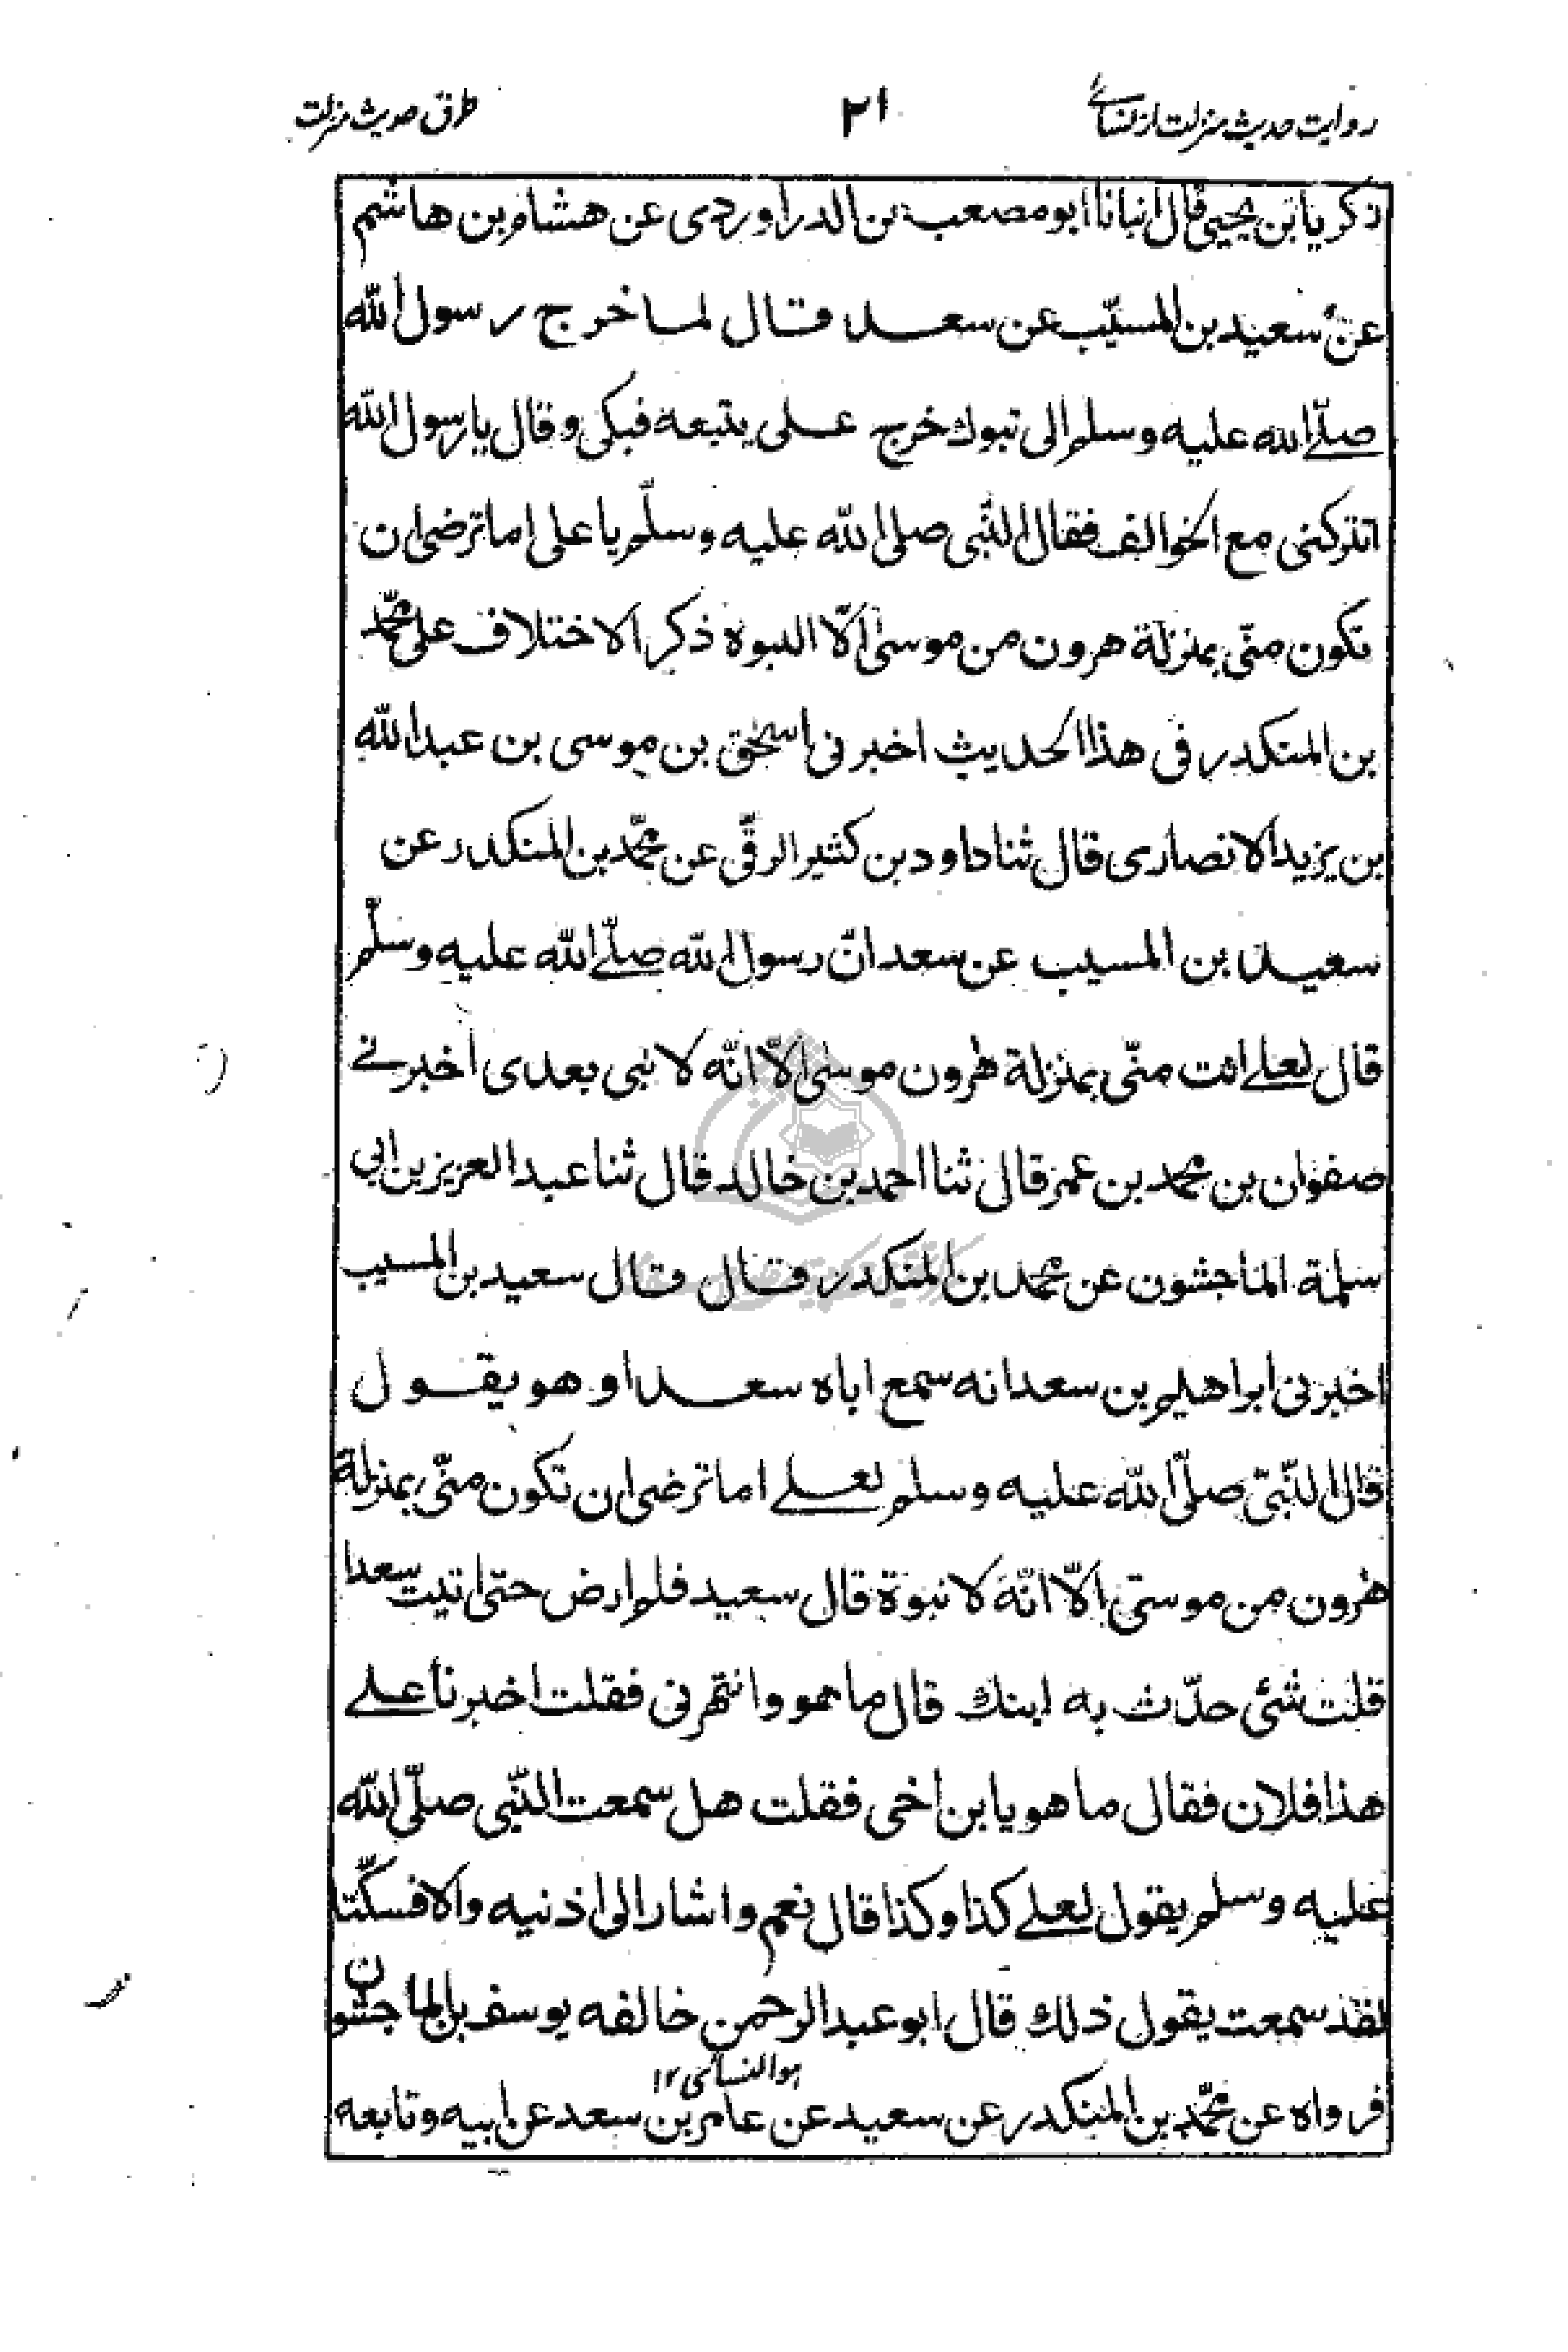 روایت حدیث منزلت از نسائے ۲۱ طرق حدیث منزلت
زكريا بن يحيى قال انبانا ابو مصعب بن الدراوردى عن هشام بن هاشم
عن سعيد بن المسيّب عن سعد قال لما خرج رسول الله
صلّے الله عليه وسلم الى تبوك خرج على يتبعه فبكى وقال يا رسول الله
اتتركنى مع الخوالف فقال النّبى صلى الله عليه وسلّم يا على اما ترضى ان
تكون منّى بمنزلة هرون من موسى الّا النبوة ذكر الاختلاف على محمّد
بن المنكدر فى هذا الحديث اخبرنى اسحٰق بن موسى بن عبد الله
بن يزيد الانصارى قال ثنا داود بن كثير الرقّى عن محمّد بن المنكدر عن
سعيد بن المسيب عن سعد انّ رسول الله صلّے الله عليه وسلّم
قال لعلے انت منّى بمنزلة هٰرون موسى الّا انّه لا نبى بعدى اخبرنے
صفوان بن محمد بن عمر قال ثنا احمد بن خالد قال ثنا عبد العزيز بن ابى
سلمة الماجشون عن محمد بن المنكدر قال قال سعيد بن المسيب
اخبرنى ابراهيم بن سعد انه سمع اباه سعدا و هو يقول
قال النّبىّ صلّى الله عليه وسلم لعلے اما ترضى ان تكون منّى بمنزلة
هٰرون من موسى الّا انّه لا نبوة قال سعيد فلم ارض حتى اتيت سعدا
قلت شئ حدّث به ابنك قال ما هو وانتهرنى فقلت اخبرنا علے
هذا فلان فقال ما هو يا بن اخى فقلت هل سمعت النّبى صلّى الله
عليه وسلم يقول لعلے كذا وكذا قال نعم واشار الى اذنيه والا فسكّتا
لقد سمعت يقول ذلك قال ابو عبد الرحمن خالفه يوسف بن الماجشون
هو النسائى ۱۲
فرواه عن محمّد بن المنكدر عن سعيد عن عامر بن سعد عن ابيه وتابعه